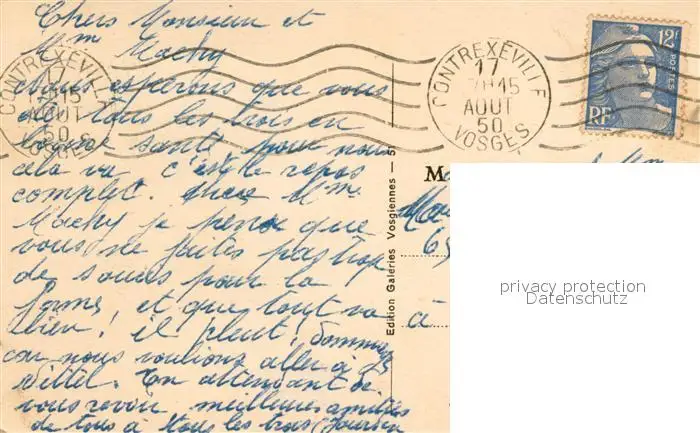 Chers Monsieur et
Mme Machy
nous espérons que vous
êtes tous les trois en
bonne santé, pour nous
cela va c'est le repos
complet. chère Mme
Machy je pense que
vous ne faites pas trop
de soucis pour la
ferme, et que tout va
bien! il pleut! Dommage
car nous voulions aller à
Vittel. En attendant de
vous revoir, meilleures amitiés
de tous à tous les trois
CONTREXÉVILLE
17
H15
AOUT
50
VOSGES
CONTREXÉVILLE
17
H15
AOUT
50
VOSGES
12F
POSTES
RF
Edition Galeries Vosgiennes —
M
à
privacy protection
Datenschutz